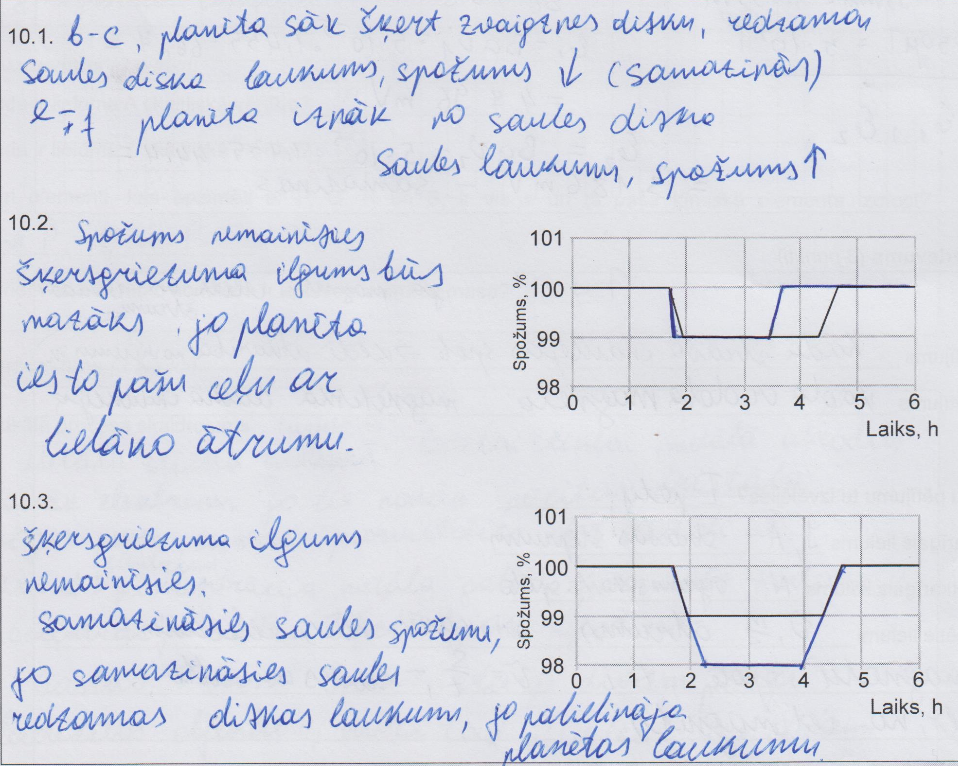 10.1. b-c, planēta sāk šķert zvaigznes disku, redzamais
Saules diska laukums, spožums ↓ (samazinās)
e-f planēta iznāk no saules diska
Saules laukums, spožums ↑
10.2. Spožums nemainīsies
šķersgriezuma ilgums būs
mazāks, jo planēta
ies to pašu ceļu ar
lielāko ātrumu.
101
100
99
98
Spožums, %
0 1 2 3 4 5 6
Laiks, h
10.3.
šķersgriezuma ilgums
nemainīsies.
samazināsies saules spožums,
jo samazināsies saules
redzamas diskas laukums, jo palielināja
planētas laukumu
101
100
99
98
Spožums, %
0 1 2 3 4 5 6
Laiks, h